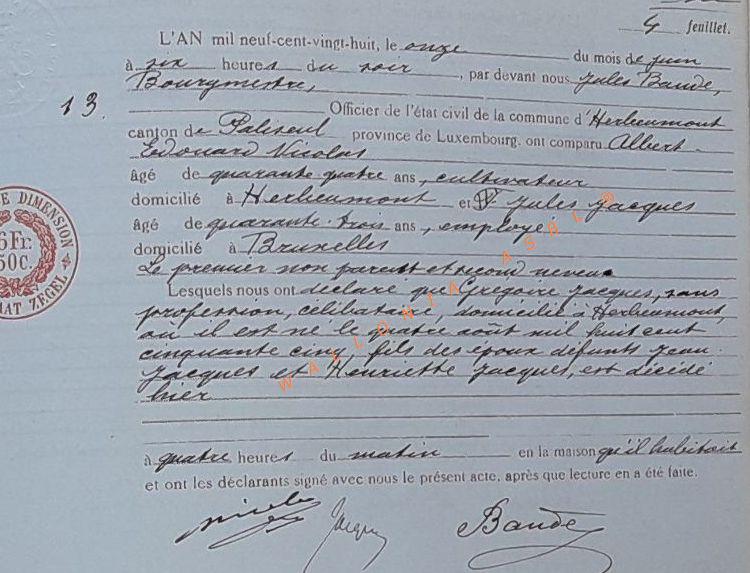 4 feuillet.
L'AN mil neuf-cent-vingt-huit, le onze du mois de juin
à six heures du soir, par devant nous Jules Baude,
Bourgmestre,
13.
Officier de l'état civil de la commune d'Herbeumont
canton de Paliseul province de Luxembourg. ont comparu Albert-
Edouard Nicolas
âgé de quarante quatre ans, cultivateur
domicilié à Herbeumont et Jules Jacques
âgé de quarante-trois ans, employé
domicilié à Bruxelles
Le premier non parent et second neveu
Lesquels nous ont déclaré que Grégoire Jacques, sans
profession, célibataire, domicilié à Herbeumont,
où il est né le quatre août mil huit cent
cinquante cinq, fils des époux défunts Jean-
Jacques et Henriette Jacques, est décédé
hier
à quatre heures du matin en la maison qu'il habitait
et ont les déclarants signé avec nous le présent acte, après que lecture en a été faite.
Jacques Baude
E DIMENSION
Fr.
50c.
MAT ZEGEL
WALLONIA ASAL®